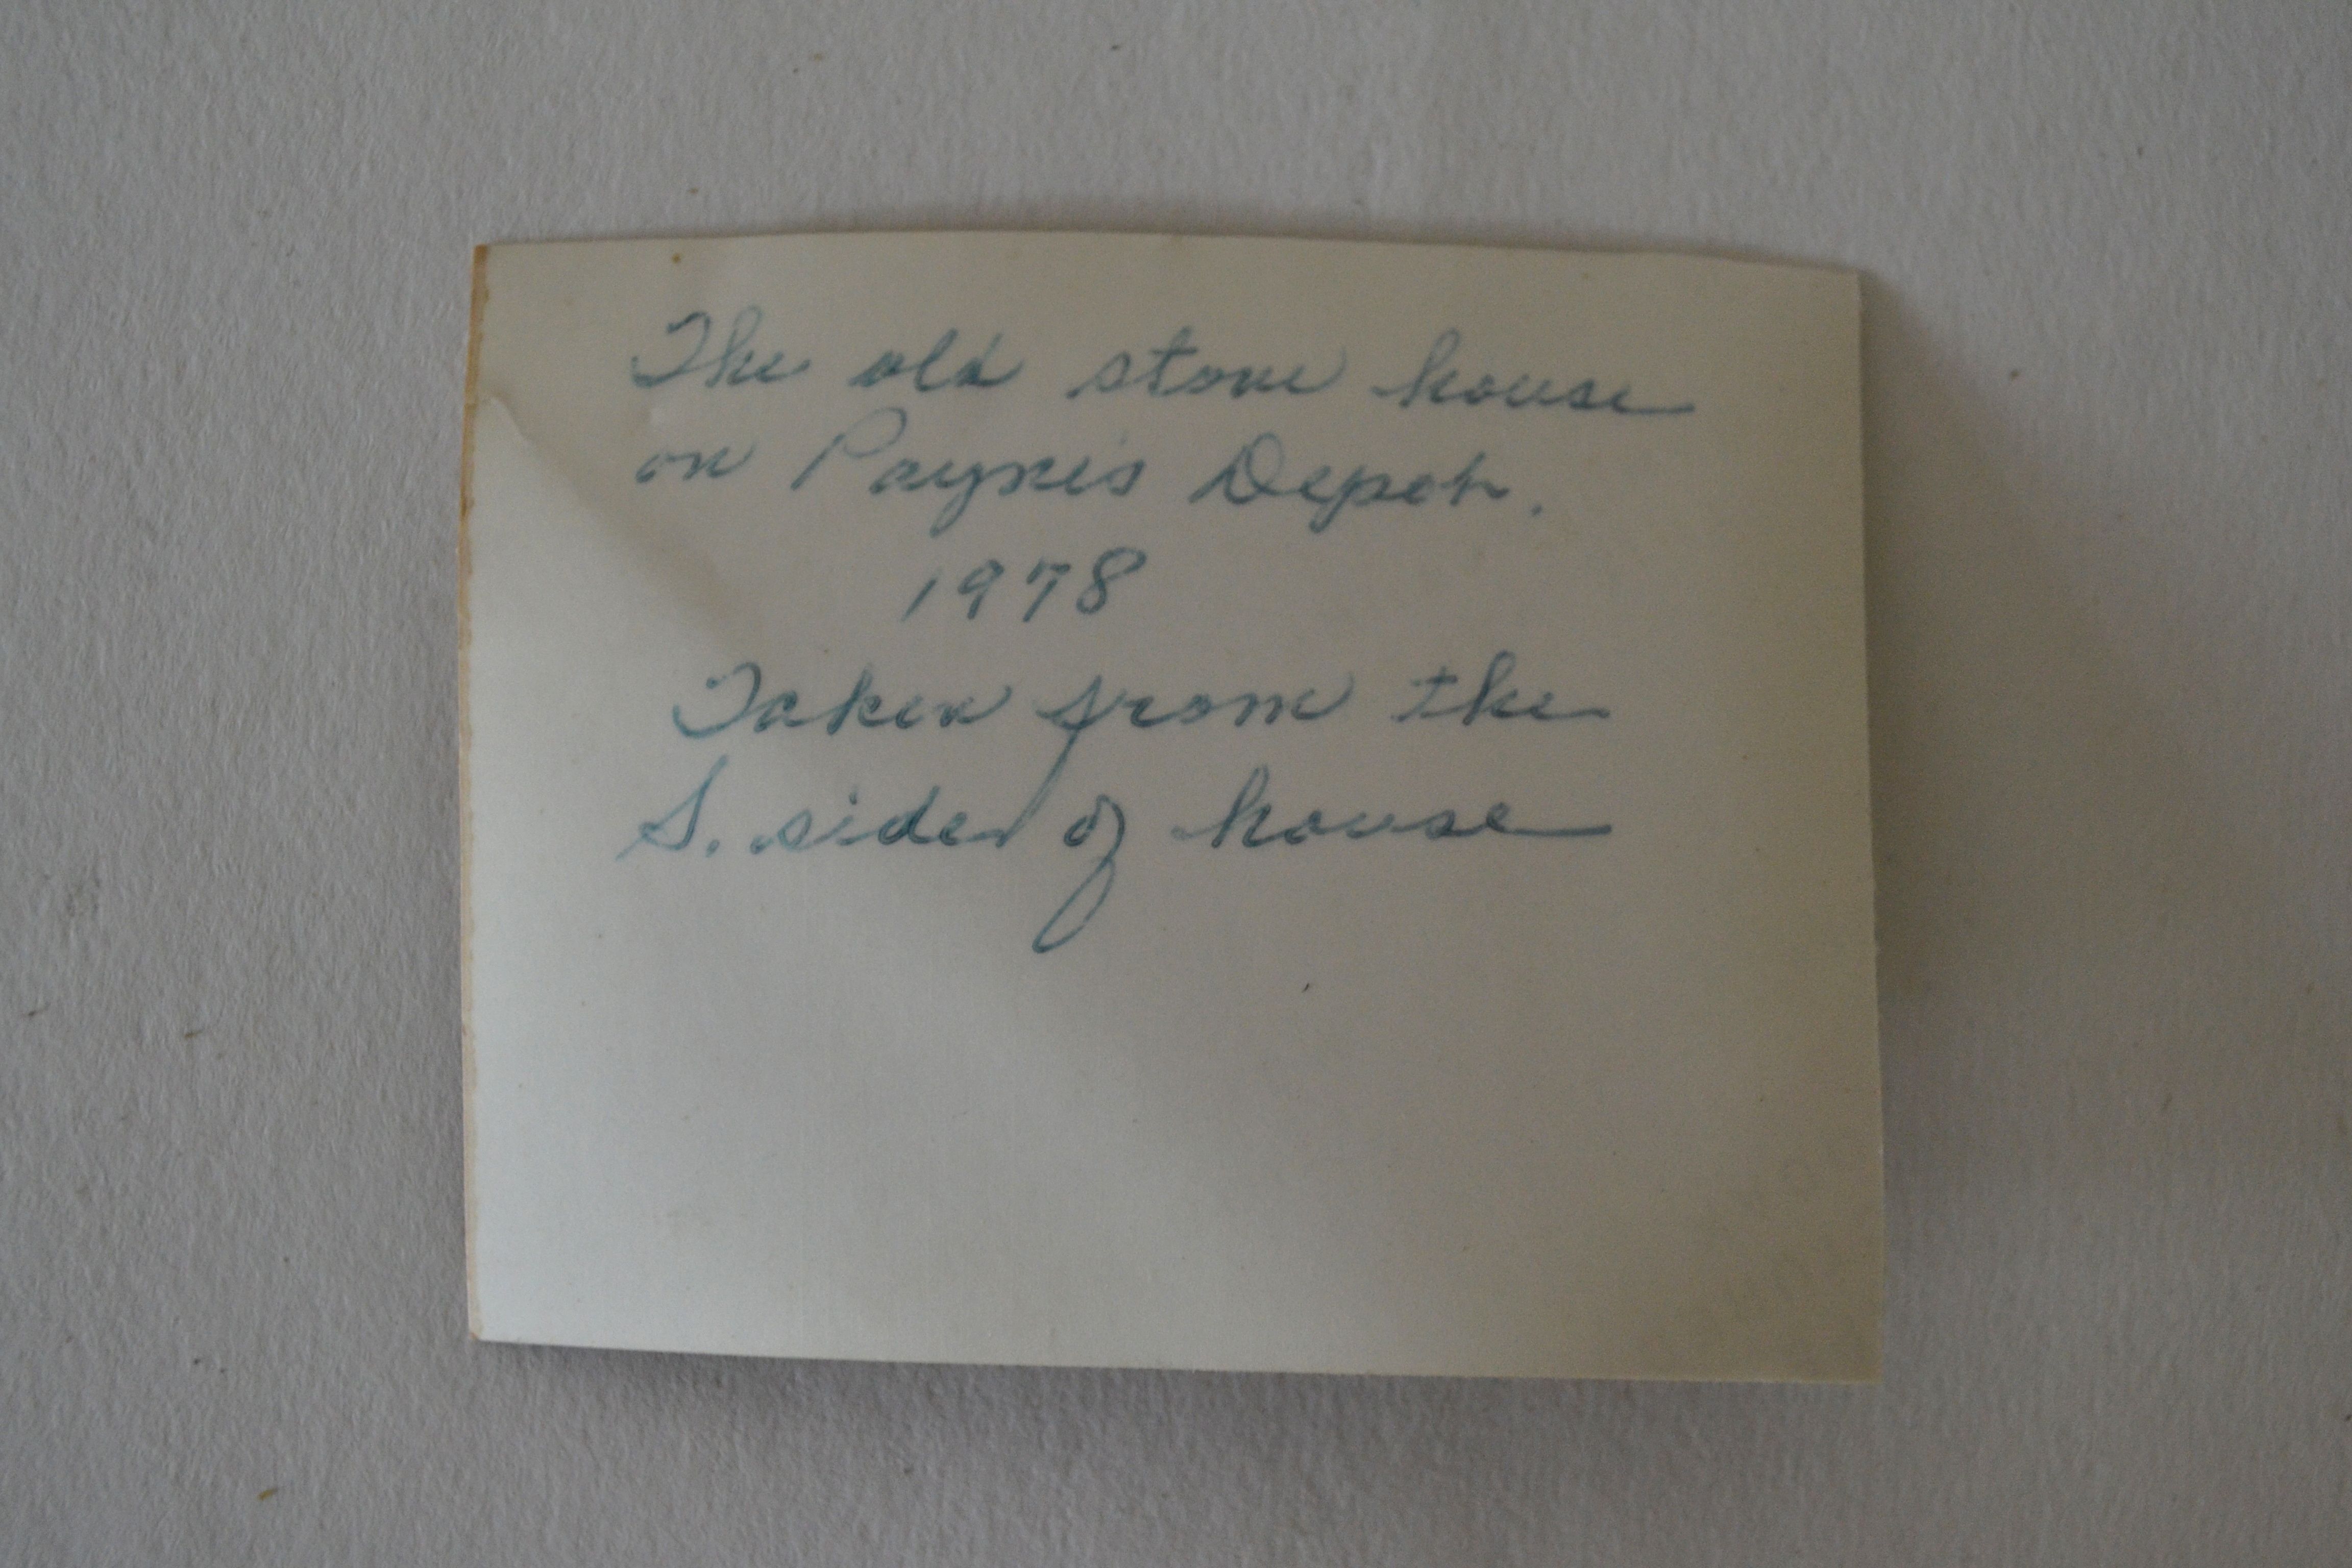 The old stone house
on Payne's Depot.
1978
Taken from the
S. side of house